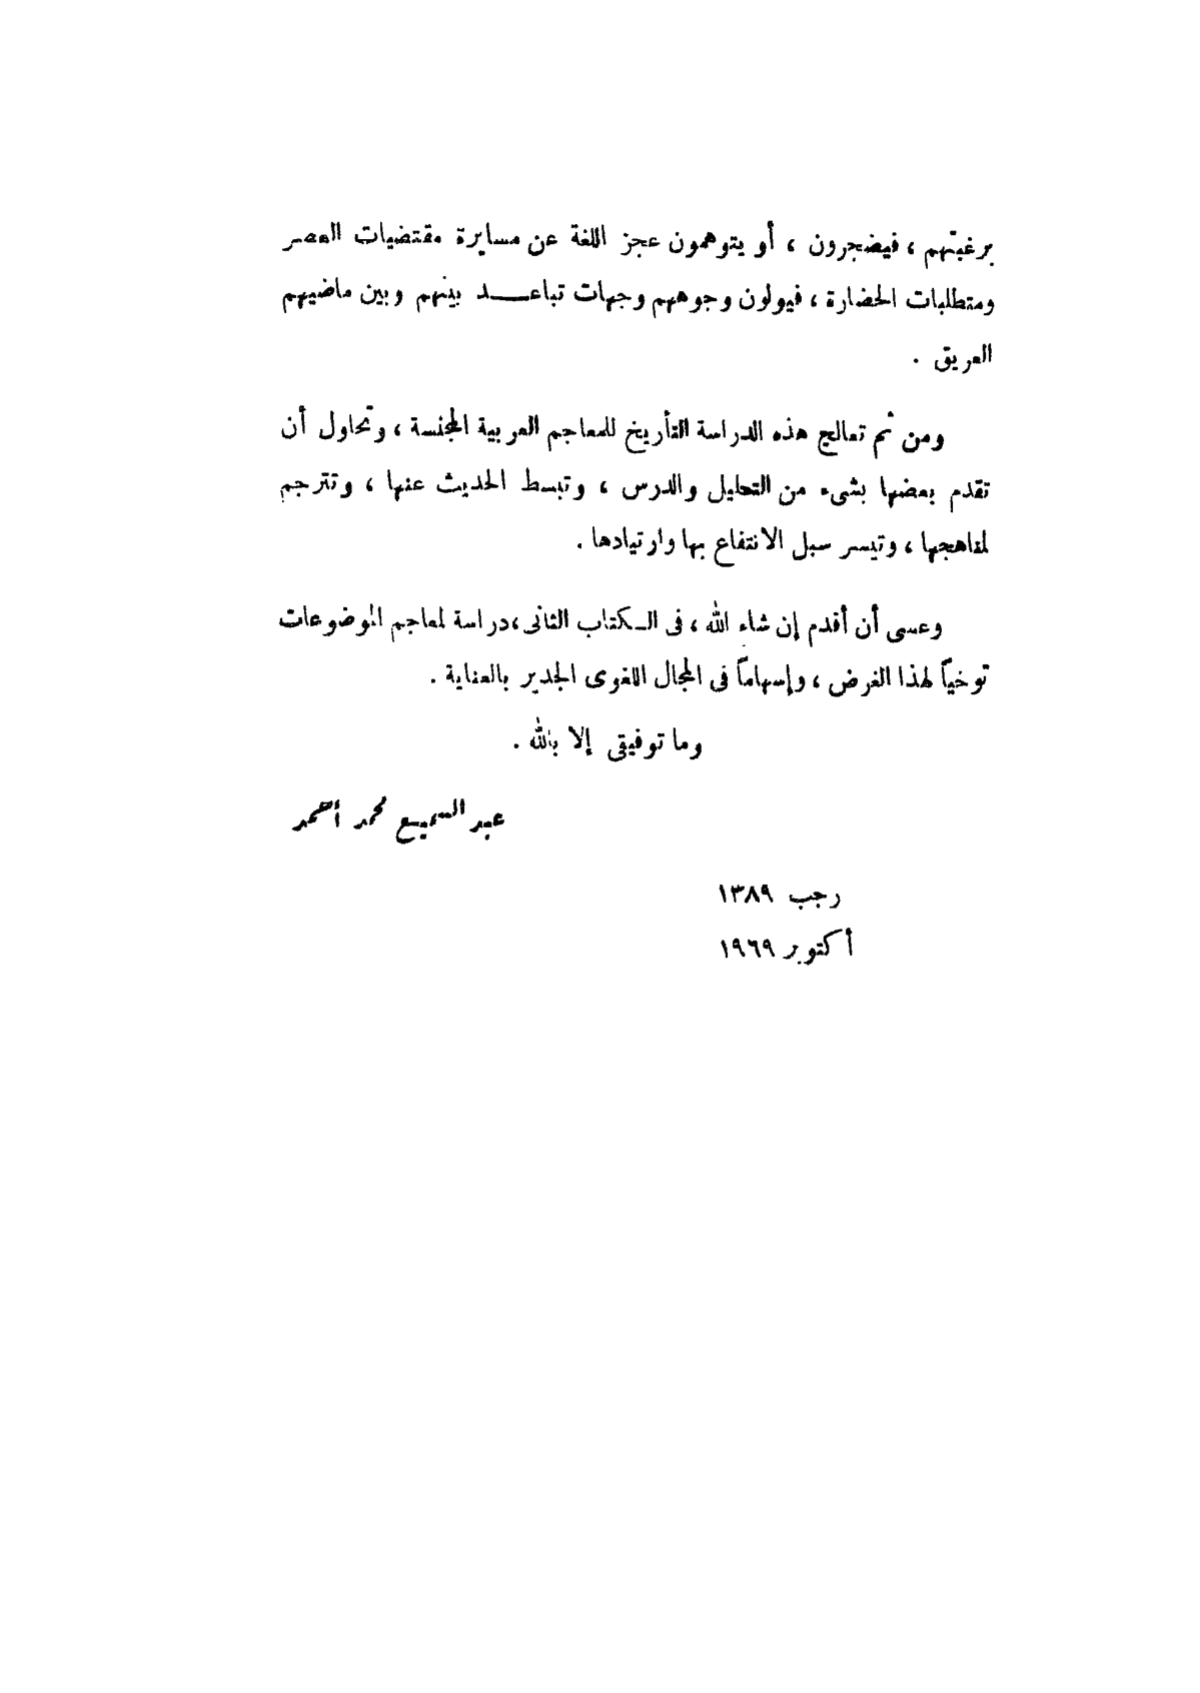 برغبتهم ، فيضجرون ، أو يتوهمون عجز اللغة عن مسايرة مقتضيات العصر
ومتطلبات الحضارة ، فيولون وجوههم وجهات تباعد بينهم وبين ماضيهم
العريق .
ومن ثم تعالج هذه الدراسة التأريخ للمعاجم العربية المجنسة ، وتحاول أن
تقدم بعضها بشىء من التحليل والدرس ، وتبسط الحديث عنها ، وتترجم
لمناهجها ، وتيسر سبل الانتفاع بها وارتيادها .
وعسى أن أقدم إن شاء الله ، فى الكتاب الثانى ، دراسة لمعاجم الموضوعات
توخياً لهذا الغرض ، وإسهاماً فى المجال اللغوى الجدير بالعناية .
وما توفيقى إلا بالله .
عبد السميع محمد أحمد
رجب ١٣٨٩
أكتوبر ١٩٦٩